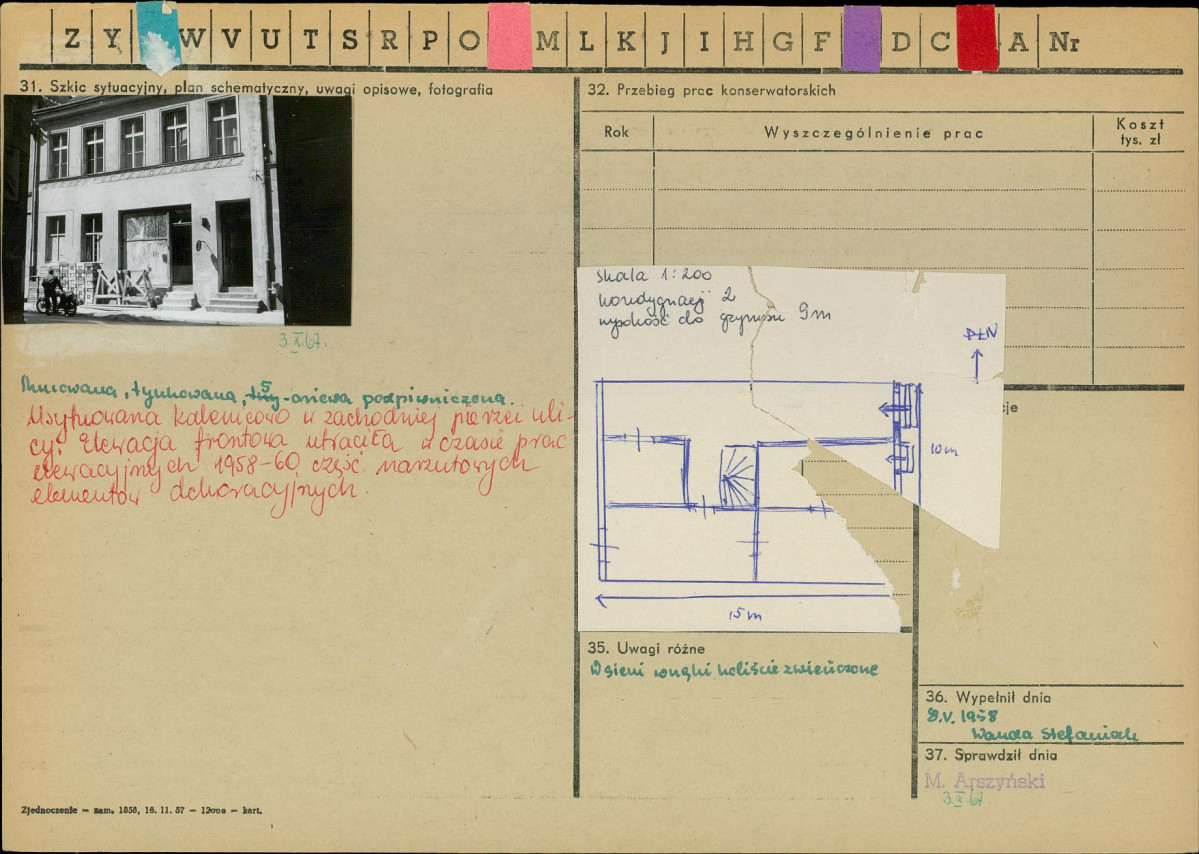 Z Y W V U T S R P O M L K J I H G F D C A Nr
31. Szkic sytuacyjny, plan schematyczny, uwagi opisowe, fotografia
3.X.67.
Murowana, tynkowana, 5-osiowa podpiwniczona.
Usytuowana kalenicowo w zachodniej pierzei uli-
cy. Elewacja frontowa utraciła w czasie prac
elewacyjnych 1958-60 część narzutowych
elementów dekoracyjnych.
Zjednoczenie — zam. 1858, 16. 11. 57 — — kart.
32. Przebieg prac konserwatorskich
Rok
Wyszczególnienie prac
Koszt
tys. zł
skala 1:200
kondygnacji 2
wysokość do gzymsu 9m
PŁN
10m
15m
cje
35. Uwagi różne
W sieni wnęki koliście zwieńczone
36. Wypełnił dnia
9.V.1958
Wanda Stefaniak
37. Sprawdził dnia
M. Arszyński
3.X.67.